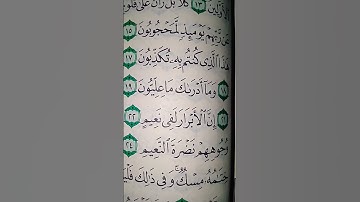 ٱلْأَوَّلِينَ ١٣ كَلَّا بَلْ رَانَ عَلَىٰ قُلُوبِ
رَّبِّهِمْ يَوْمَئِذٍ لَّمَحْجُوبُونَ ١٥
هَٰذَا ٱلَّذِى كُنتُم بِهِۦ تُكَذِّبُونَ ١٧
وَمَآ أَدْرَىٰكَ مَا عِلِّيُّونَ ١٩
إِنَّ ٱلْأَبْرَارَ لَفِى نَعِيمٍ ٢٢
وُجُوهِهِمْ نَضْرَةَ ٱلنَّعِيمِ ٢٤
خِتَٰمُهُۥ مِسْكٌ وَفِى ذَٰلِكَ